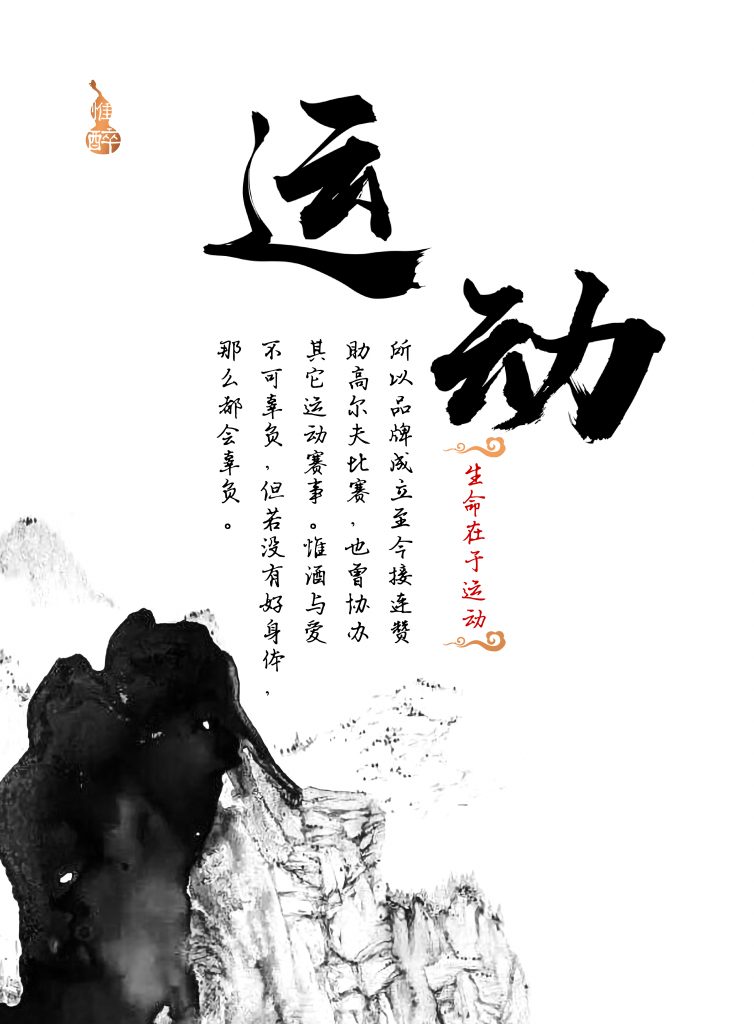 惟醉
运动
生命在于运动
所以品牌成立至今接连赞
助高尔夫比赛，也曾协办
其它运动赛事。惟酒与爱
不可辜负，但若没有好身体，
那么都会辜负。